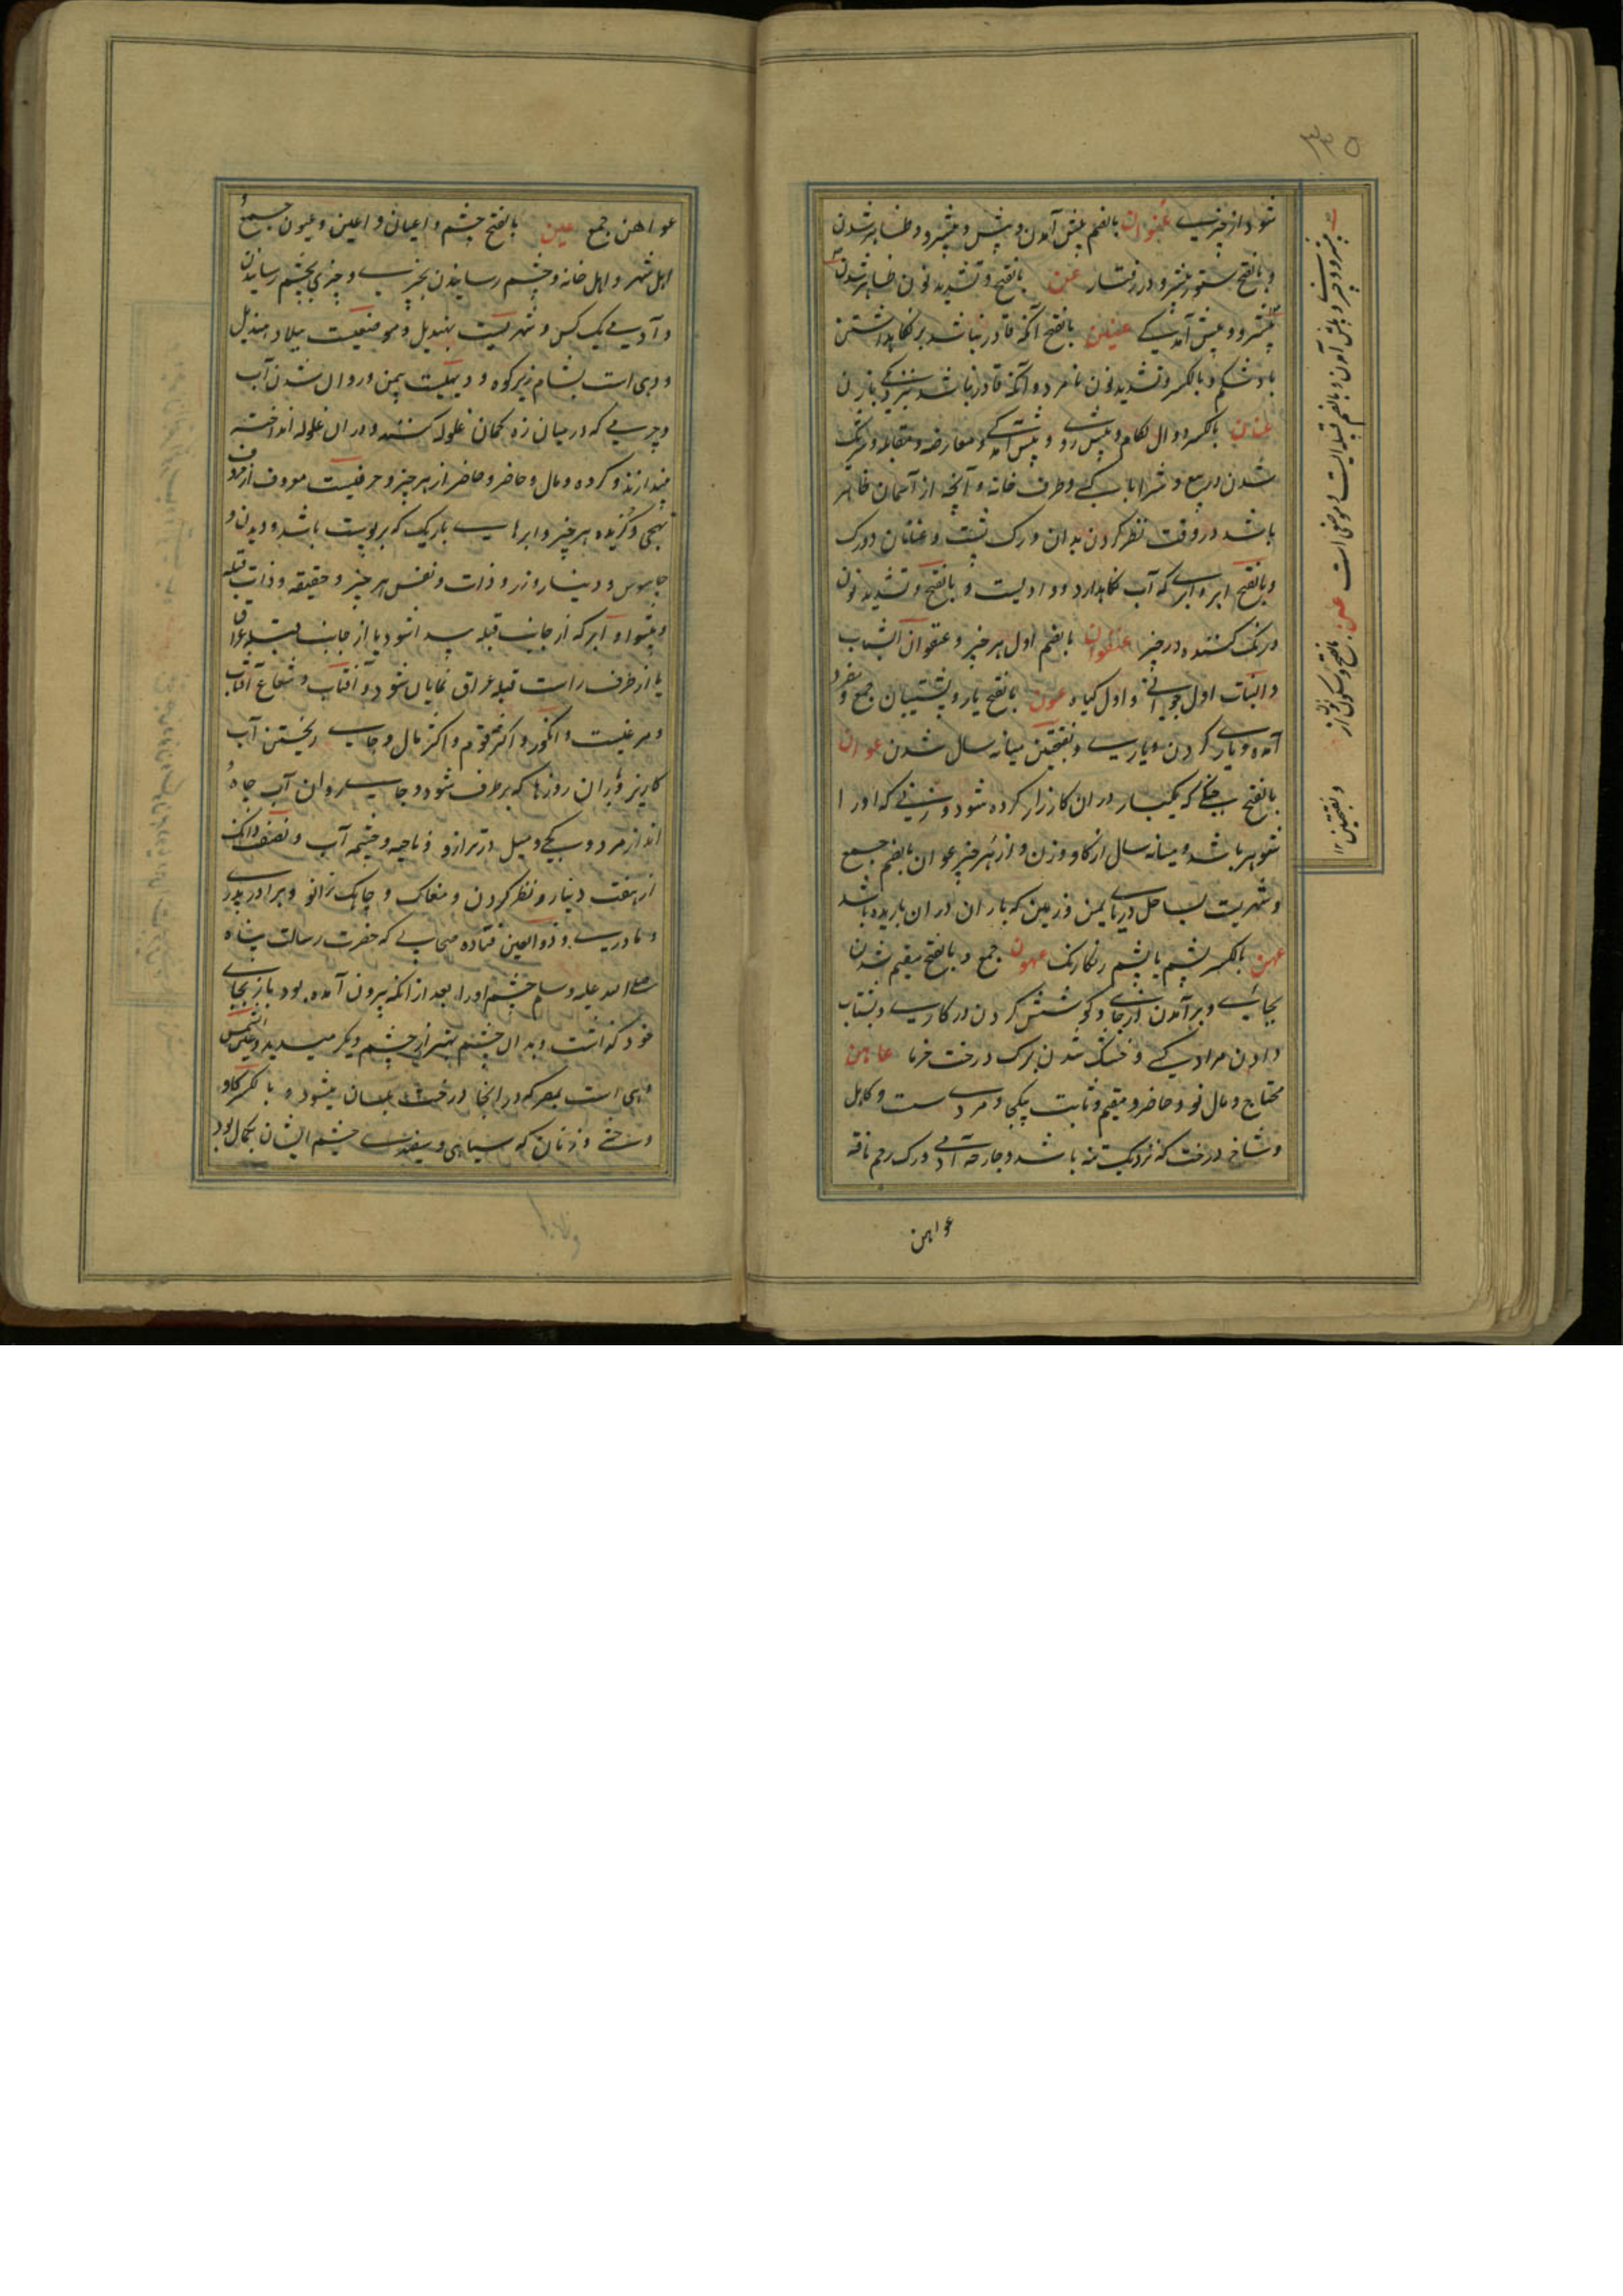 ۳۳۵
شود از چیزی عُنوان بالضم پیش آمدن و پیش و پیشرو و ظاهر شدن
و بالفتح ستور پیشرو در رفتار عن بالفتح و تشدید نون ظاهر شدن
پیشرو و پیش آمدگی عنین بالفتح آنکه قادر نباشد بر نگاهداشتن
باد شکم و بالکسر و تشدید نون نامرد و آنکه قادر نباشد بنزدیکی بازن
عنان بالکسر دوال لگام و پیش روی و پیش آمدگی و معارضه و مقابله و
شدن در بیع و شرا با کسی و طرف خانه و آنچه از آسمان ظاهر
باشد در وقت نظر کردن بدان و رگ پشت و عنانان دو رگ
و بالفتح ابر و ابری که آب نگاهدارد و وادیست و بالفتح و تشدید نون
درنگ کننده در چیز عنفوان بالضم اول هر چیز و عنفوان الشباب
و النبات اول جوانی و اول گیاه عون بالفتح یار و پشتیبان جمع و مفرد
آمده و یاری کردن و یاری و بفتحتین میانه سال شدن عوان
بالفتح جنگی که یکبار در ان کارزار کرده شود و زنی که اورا
شوهر باشد و میانه سال از گاو و زن و از هر چیز عوان بالضم جمع
و شهریست بساحل دریای یمن و زمین که باران در ان باریده باشد
عهن بالکسر پشم یا پشم رنگارنگ عهون جمع و بالفتح مقیم شدن
بجائی و بر آمدن از جای و کوشش کردن در کاری و بشتاب
دادن مراد کسی و خشک شدن برگ درخت خرما عاهن
محتاج و مال نو و حاضر و مقیم و ثابت یکجا و مرد سست و کاهل
و شاخ درخت که نزدیک تنه باشد و جارحه آدمی و رگ رحم ناقه
عواهن
عواهن جمع عین بالفتح چشم و اعیان و اعین و عیون جمع
اهل شهر و اهل خانه و چشم رسانیدن بچیزی و چیزی بچشم رسانیدن
و آدمی یک کس و شهریست بهذیل و موضعیست ببلاد هذیل
و دهی است بشام زیر کوه و دیهیست بیمن و روان شدن آب
و چرمی که در میان زه کمان غلوله کنند و در ان غلوله انداخته
بیندازند و گروه و مال و حاضر و حاضر از هر چیز و حرفیست معروف از حروف
تهجی و گزیده هر چیز و ابرهای باریک که بر پوست باشد و دیدن و
جاسوس و دینار و زر و ذات و نفس هر چیز و حقیقه و ذات قبله
و پیشوا و ابر که از جانب قبله پیدا شود یا از جانب قبله عراق
یا از طرف راست قبله عراق نمایان شود و آفتاب و شعاع آفتاب
و مرغیست و انگور و اکثر قوم و اکثر مال و جای ریختن آب
کاریز و باران روزها که بر طرف نشود و جای روان آب چاه
انداز مرد و کجی و میل در ترازو و ناحیه و چشمه آب و نصف دانک
از هفت دینار و نظر کردن و مغاک و چابک زانو و برادر پدری
و مادری و ذو العین قتاده صحابی که حضرت رسالت پناه
صلی الله علیه و سلم چشم اورا بعد از انکه بیرون آمده بود باز بجای
خود گذاشت و بدان چشم بهتر از چشم دیگر میدید و عین شمس
دهی است بمصر که در انجا درخت بلسان میشود و بالکسر گاو
وحشی و زنان که سیاهی و سفیدی چشم ایشان بکمال بود